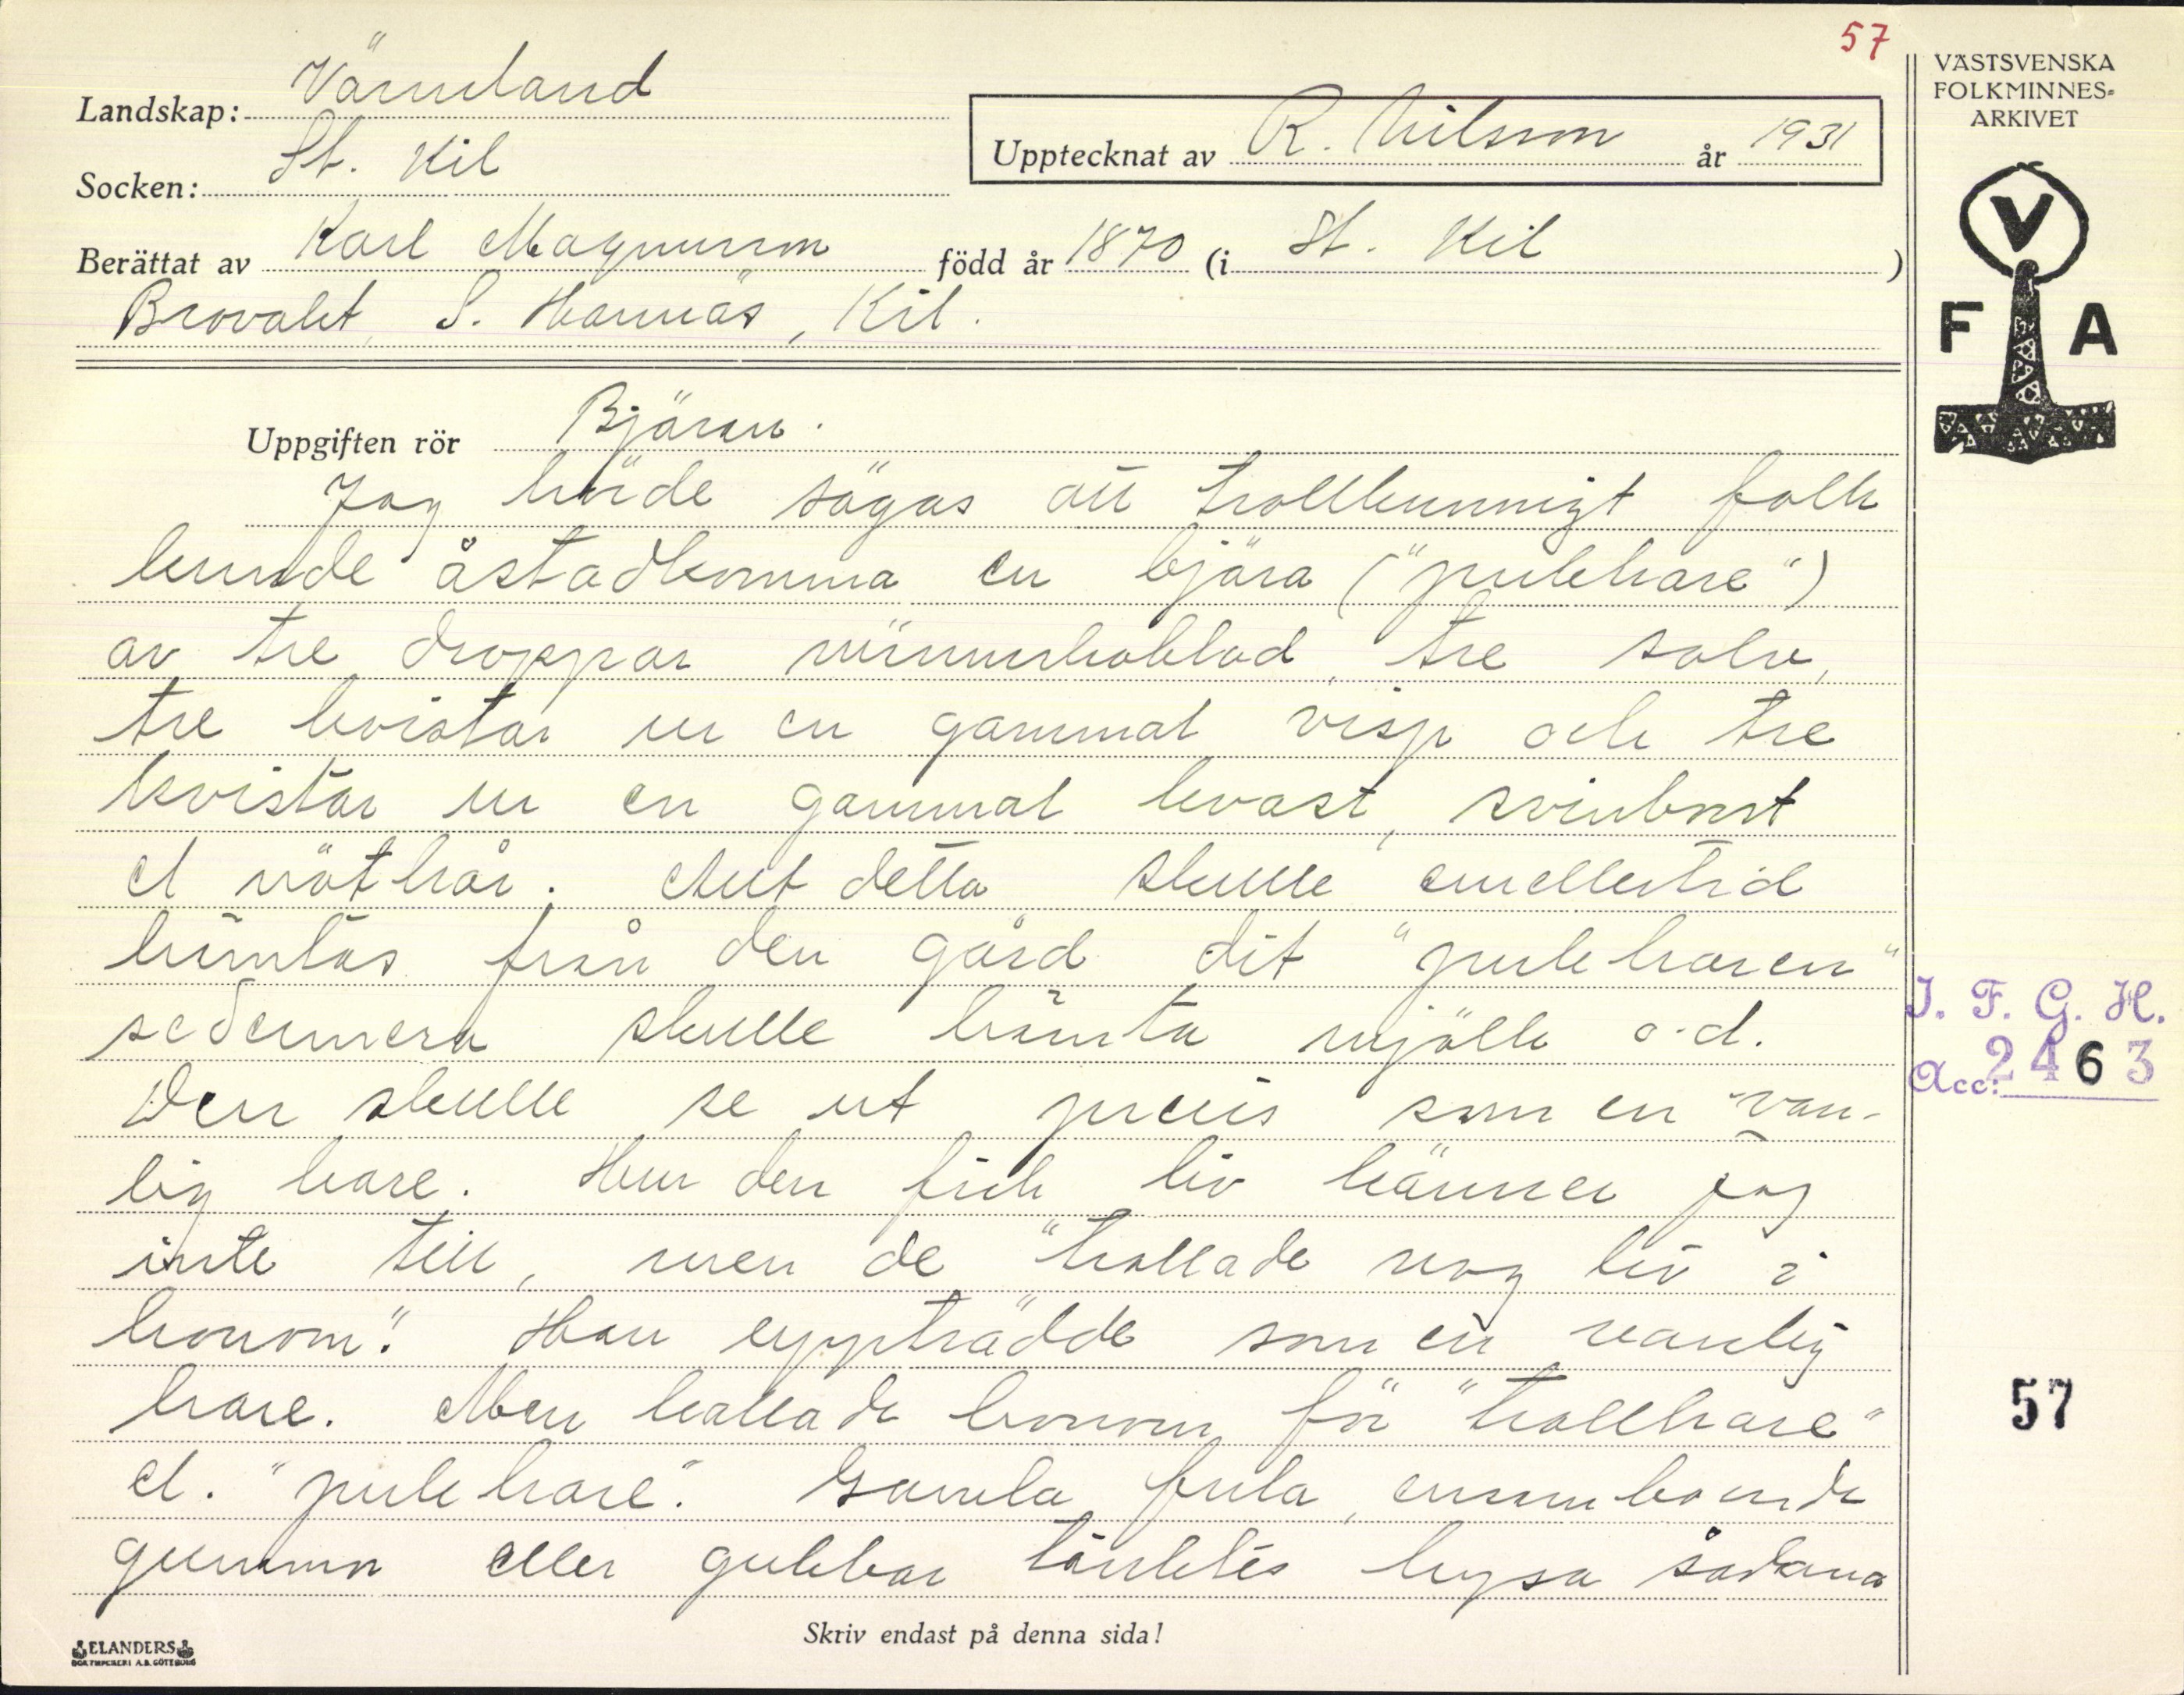 57
Landskap: Värmland
Socken: St. Kil
Upptecknat av R. Nilsson år 1931
Berättat av Karl Magnusson född år 1870 (i St. Kil )
Brovalet, S. Hannäs, Kil.
Uppgiften rör Bjäran.
Jag hörde sägas att trollkunnigt folk
kunde åstadkomma en bjära ("pukhare")
av tre droppar människoblod, tre solv,
tre kvistar ur en gammal visp och tre
kvistar ur en gammal kvast, svinborst
el nöthår. Allt detta skulle emellertid
hämtas från den gård dit "pukharen"
sedermera skulle hämta mjölk o.d.
Den skulle se ut precis som en van-
lig hare. Hur den fick liv känner jag
inte till, men de "trollade nog liv i
honom". Han uppträdde som en vanlig
hare. Men kallade honom för "trollhare"
el. "pukhare". Gamla, fula, ensamboende
gummor eller gubbar tänktes hysa sådana
Skriv endast på denna sida!
ELANDERS
BOKTRYCKERI A.B. GÖTEBORG
VÄSTSVENSKA
FOLKMINNES-
ARKIVET
V
F A
I. F. G. H.
Acc: 2463
57